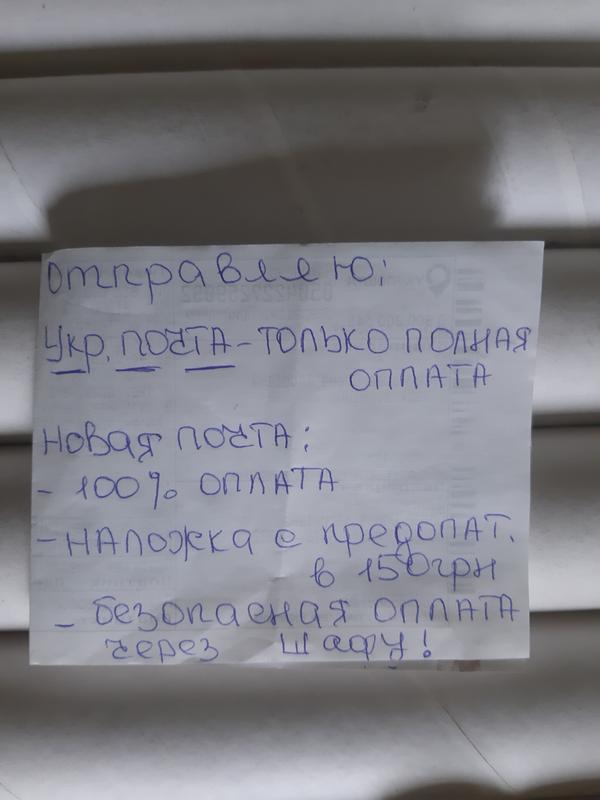 Отправляю:
Укр. почта - только полная
оплата
Новая почта:
- 100% оплата
- наложка с предопат.
в 150грн
- безопасная оплата
через шафу!